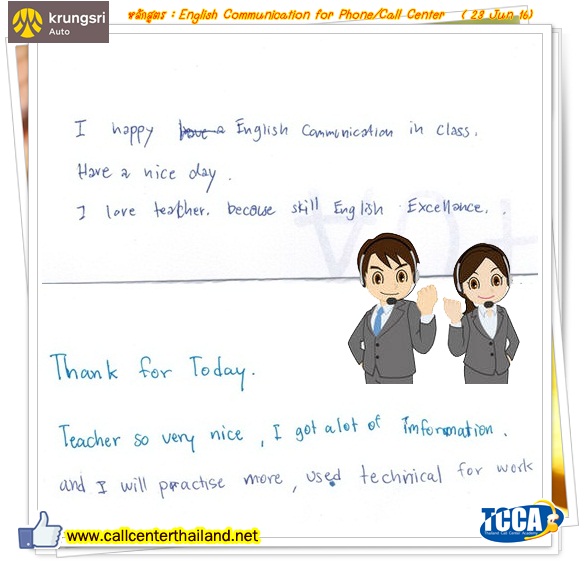 krungsri
Auto
หลักสูตร : English Communication for Phone/Call Center ( 23 Jun 16)
I happy have a English Communication in class.
Have a nice day.
I love teacher. because skill English Excellance.
Thank for Today.
Teacher so very nice, I got alot of imformation.
and I will practise more, used technical for work
www.callcenterthailand.net
TCCA
Thailand Call Center Academy